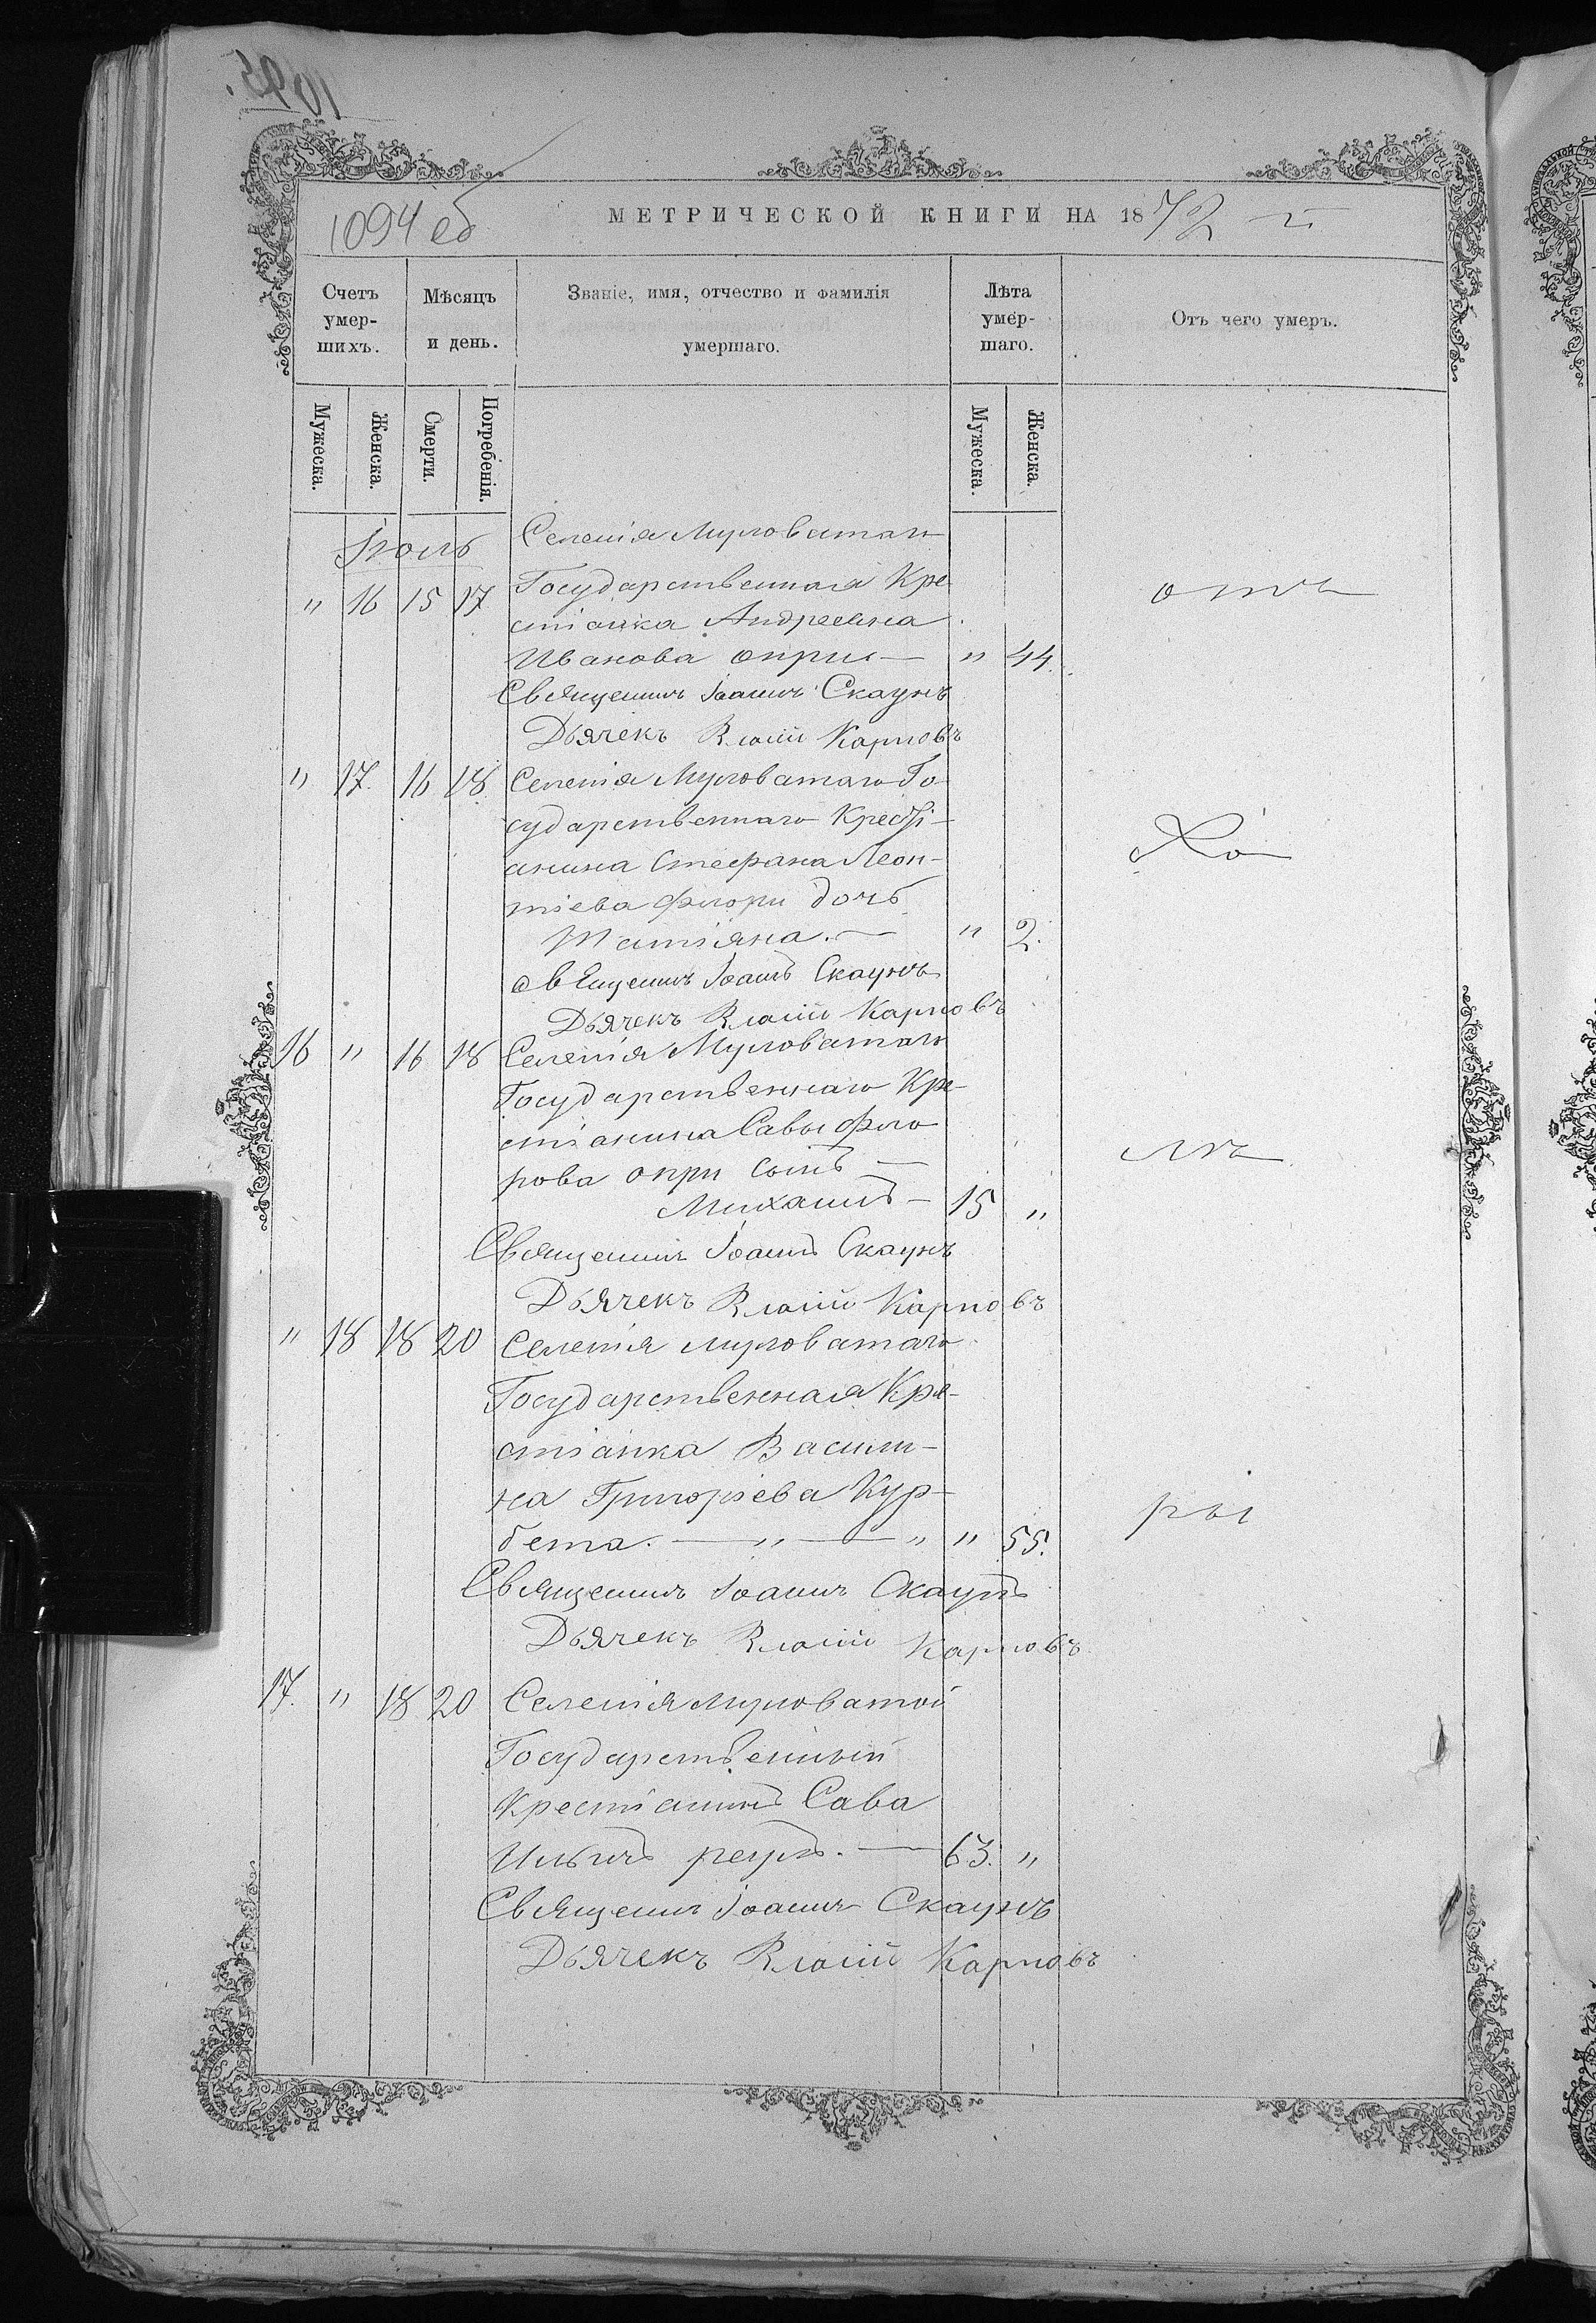 1094 об
МЕТРИЧЕСКОЙ КНИГИ НА 1872
Счетъ умер-шихъ.
Мѣсяцъ и день.
Званіе, имя, отчество и фамилія умершаго.
Лѣта умер-шаго.
Отъ чего умеръ.
Мужеска.
Женска.
Смерти.
Погребенія.
Мужеска.
Женска.
Іюль
Селенія Муловатаго
" 16 15 17 Государственная Кре
стіанка Андреевна
Иванова опри — " 44.
отъ
Священникъ Іоаннъ Скаунъ
Дьячекъ Власій Карповъ
" 17. 16 18. Селенія Муловатаго Го
сударственнаго Кресті-
анина Стефана Леон-
тіева Флори дочь
Татіяна. — " 2.
Хо
Священникъ Іоаннъ Скаунъ
Дьячекъ Власій Карповъ
16 " 16 18 Селенія Муловатаго
Государственнаго Кре-
стіанина Савы Фло
рова опри сынъ —
Михаилъ — 15 "
ле
Священникъ Іоаннъ Скаунъ
Дьячекъ Власій Карповъ
" 18 18 20 Селенія Муловатаго
Государственная Кре-
стіанка Васили-
на Григоріева Кур-
бета. — " — " " 55.
ры
Священникъ Іоаннъ Скаунъ
Дьячекъ Власій Карповъ
17. " 18 20 Селенія Муловатой
Государственный
Крестіанинъ Сава
Ильичъ реулъ. — 63. "
Священникъ Іоаннъ Скаунъ
Дьячекъ Власій Карповъ